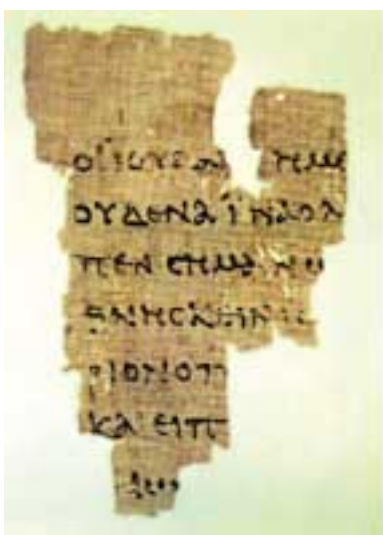 ΟΙ ΙΟΥΔΑΙ ΗΜΕ
ΟΥΔΕΝΑ ΙΝΑ Ο Λ
ΠΕΝ ϹΗΜΑΙΝΩ
ΘΝΗϹΚΕΙΝ ΙϹ
ΡΙΟΝ Ο Π
ΚΑΙ ΕΙΠ